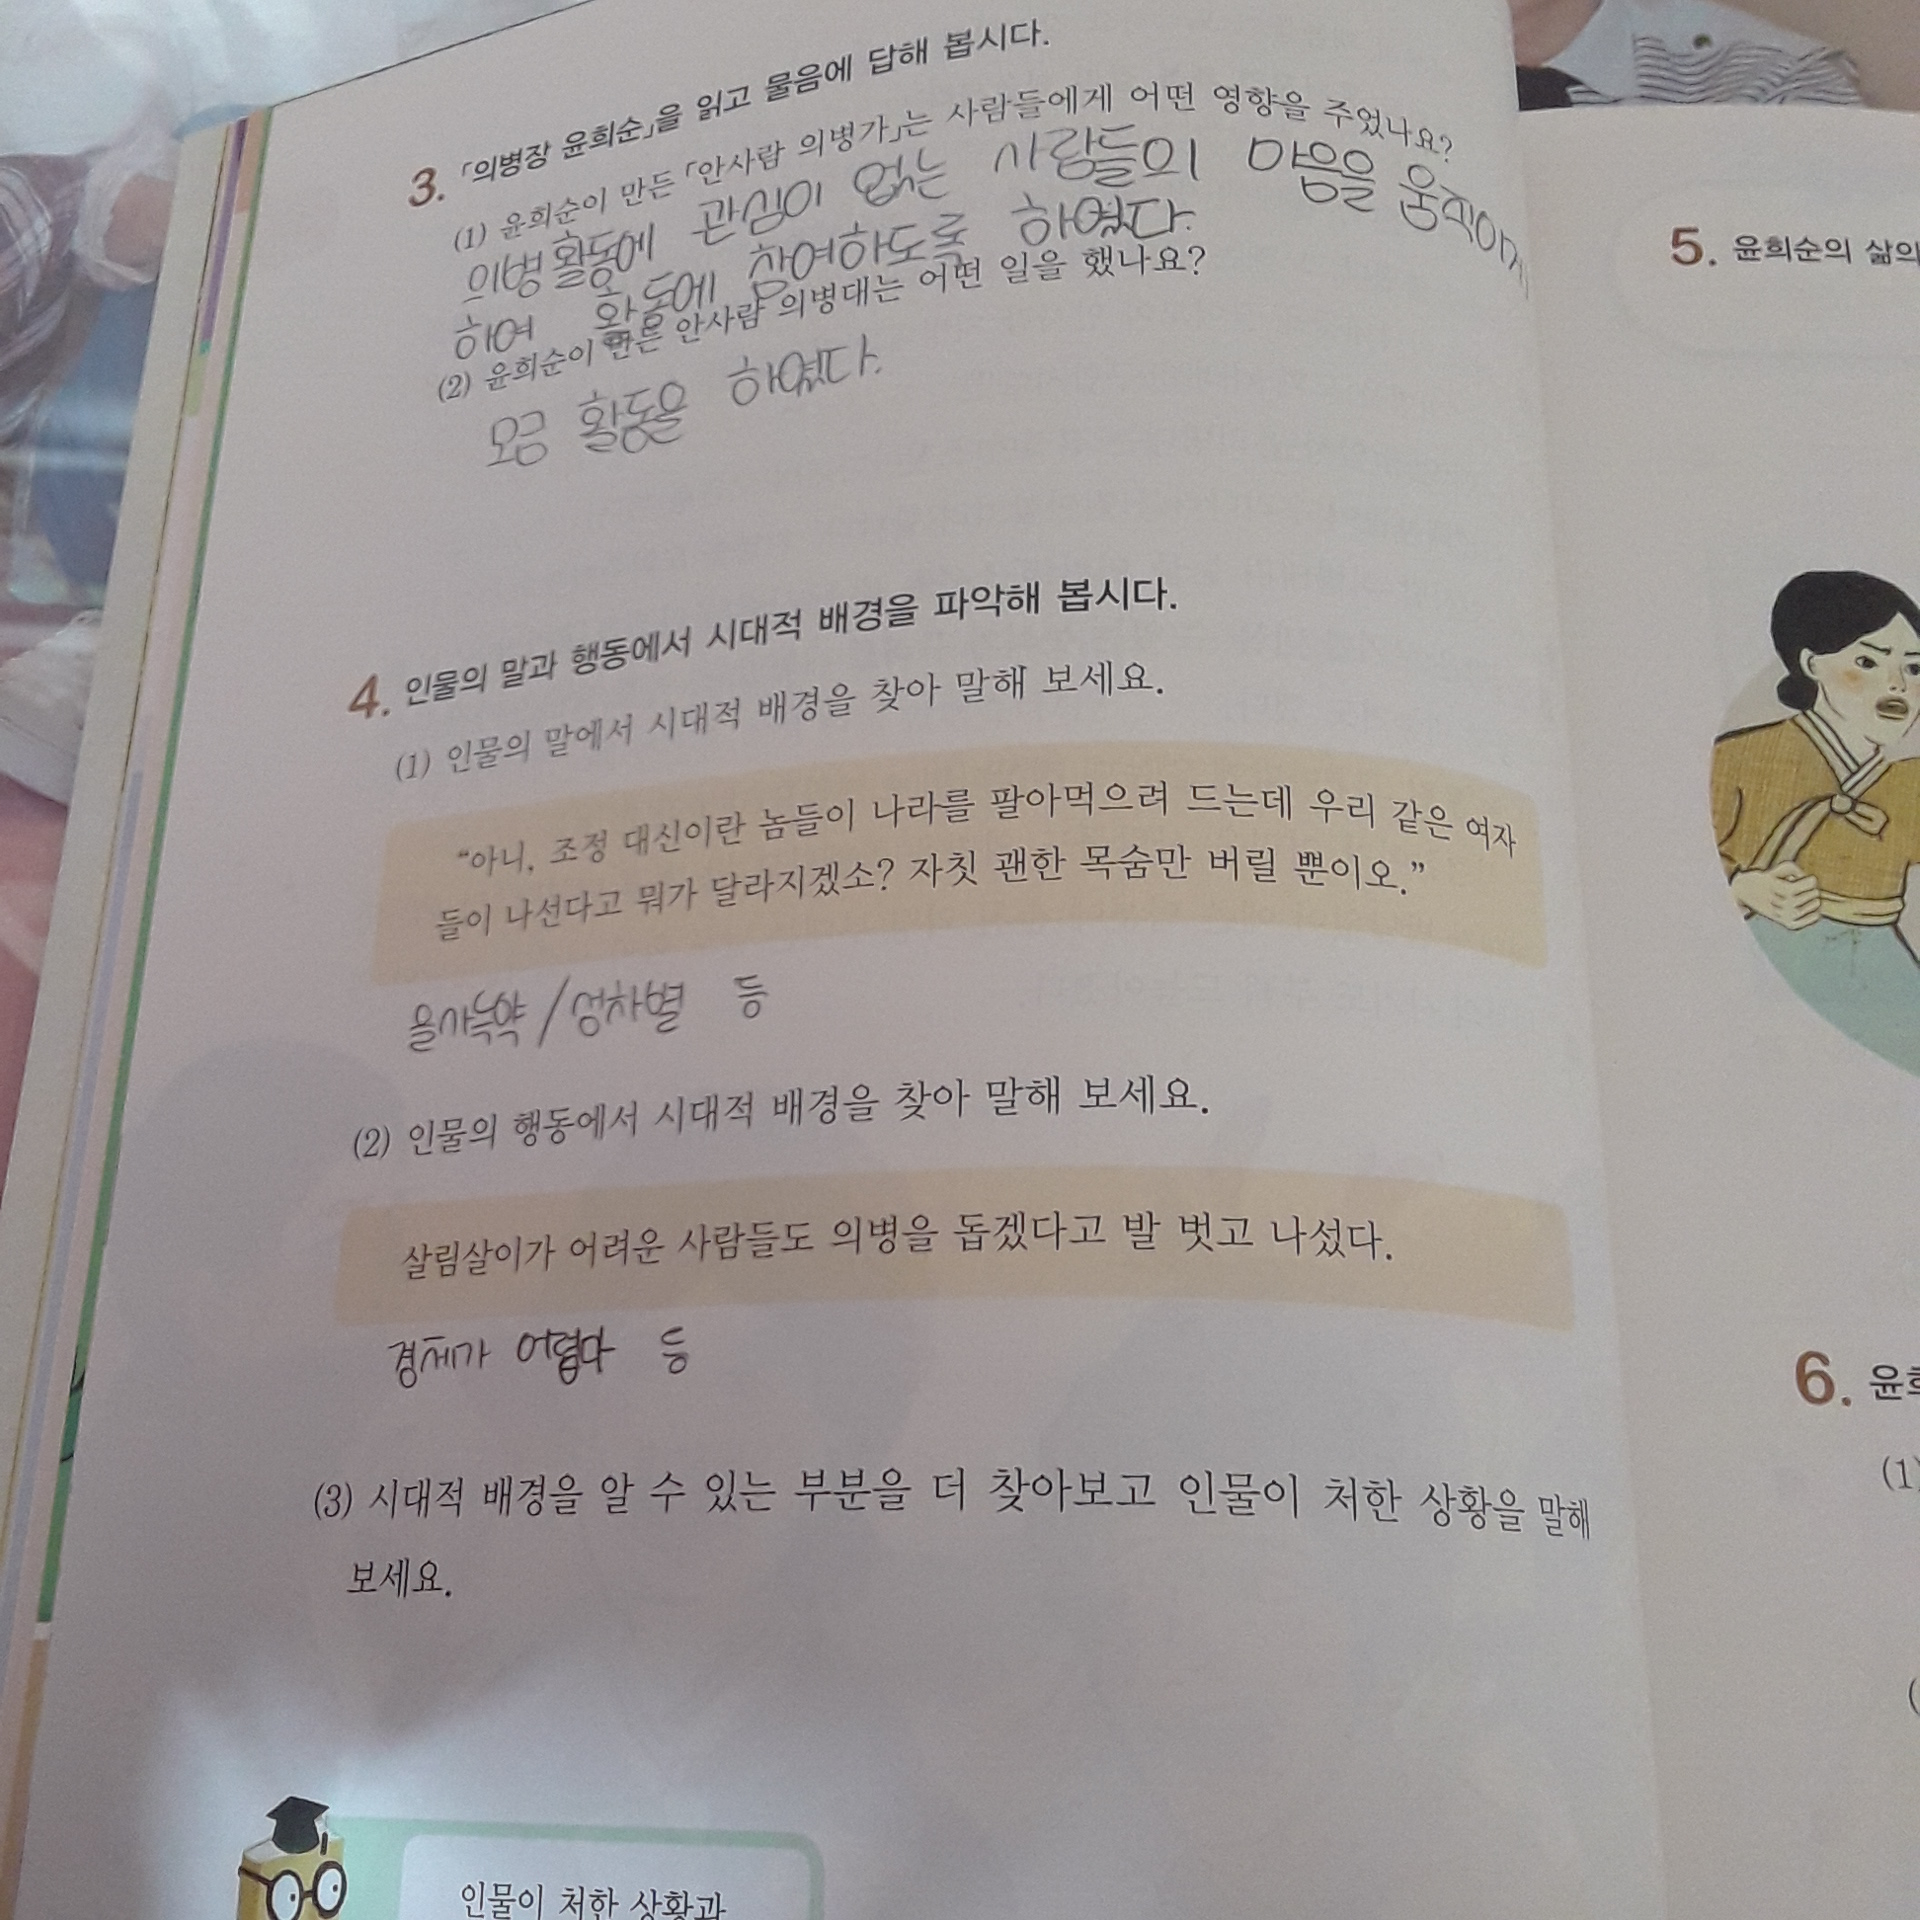 3. 「의병장 윤희순」을 읽고 물음에 답해 봅시다.
(1) 윤희순이 만든 「안사람 의병가」는 사람들에게 어떤 영향을 주었나요?
의병 활동에 관심이 없는 사람들의 마음을 움직이게
하여 활동에 참여하도록 하였다.
(2) 윤희순이 만든 안사람 의병대는 어떤 일을 했나요?
모금 활동을 하였다.
4. 인물의 말과 행동에서 시대적 배경을 파악해 봅시다.
(1) 인물의 말에서 시대적 배경을 찾아 말해 보세요.
“아니, 조정 대신이란 놈들이 나라를 팔아먹으려 드는데 우리 같은 여자
들이 나선다고 뭐가 달라지겠소? 자칫 괜한 목숨만 버릴 뿐이오.”
을사늑약 / 성차별 등
(2) 인물의 행동에서 시대적 배경을 찾아 말해 보세요.
살림살이가 어려운 사람들도 의병을 돕겠다고 발 벗고 나섰다.
경제가 어렵다 등
(3) 시대적 배경을 알 수 있는 부분을 더 찾아보고 인물이 처한 상황을 말해
보세요.
인물이 처한 상황과
5. 윤희순의 삶의
6. 윤희
(1)